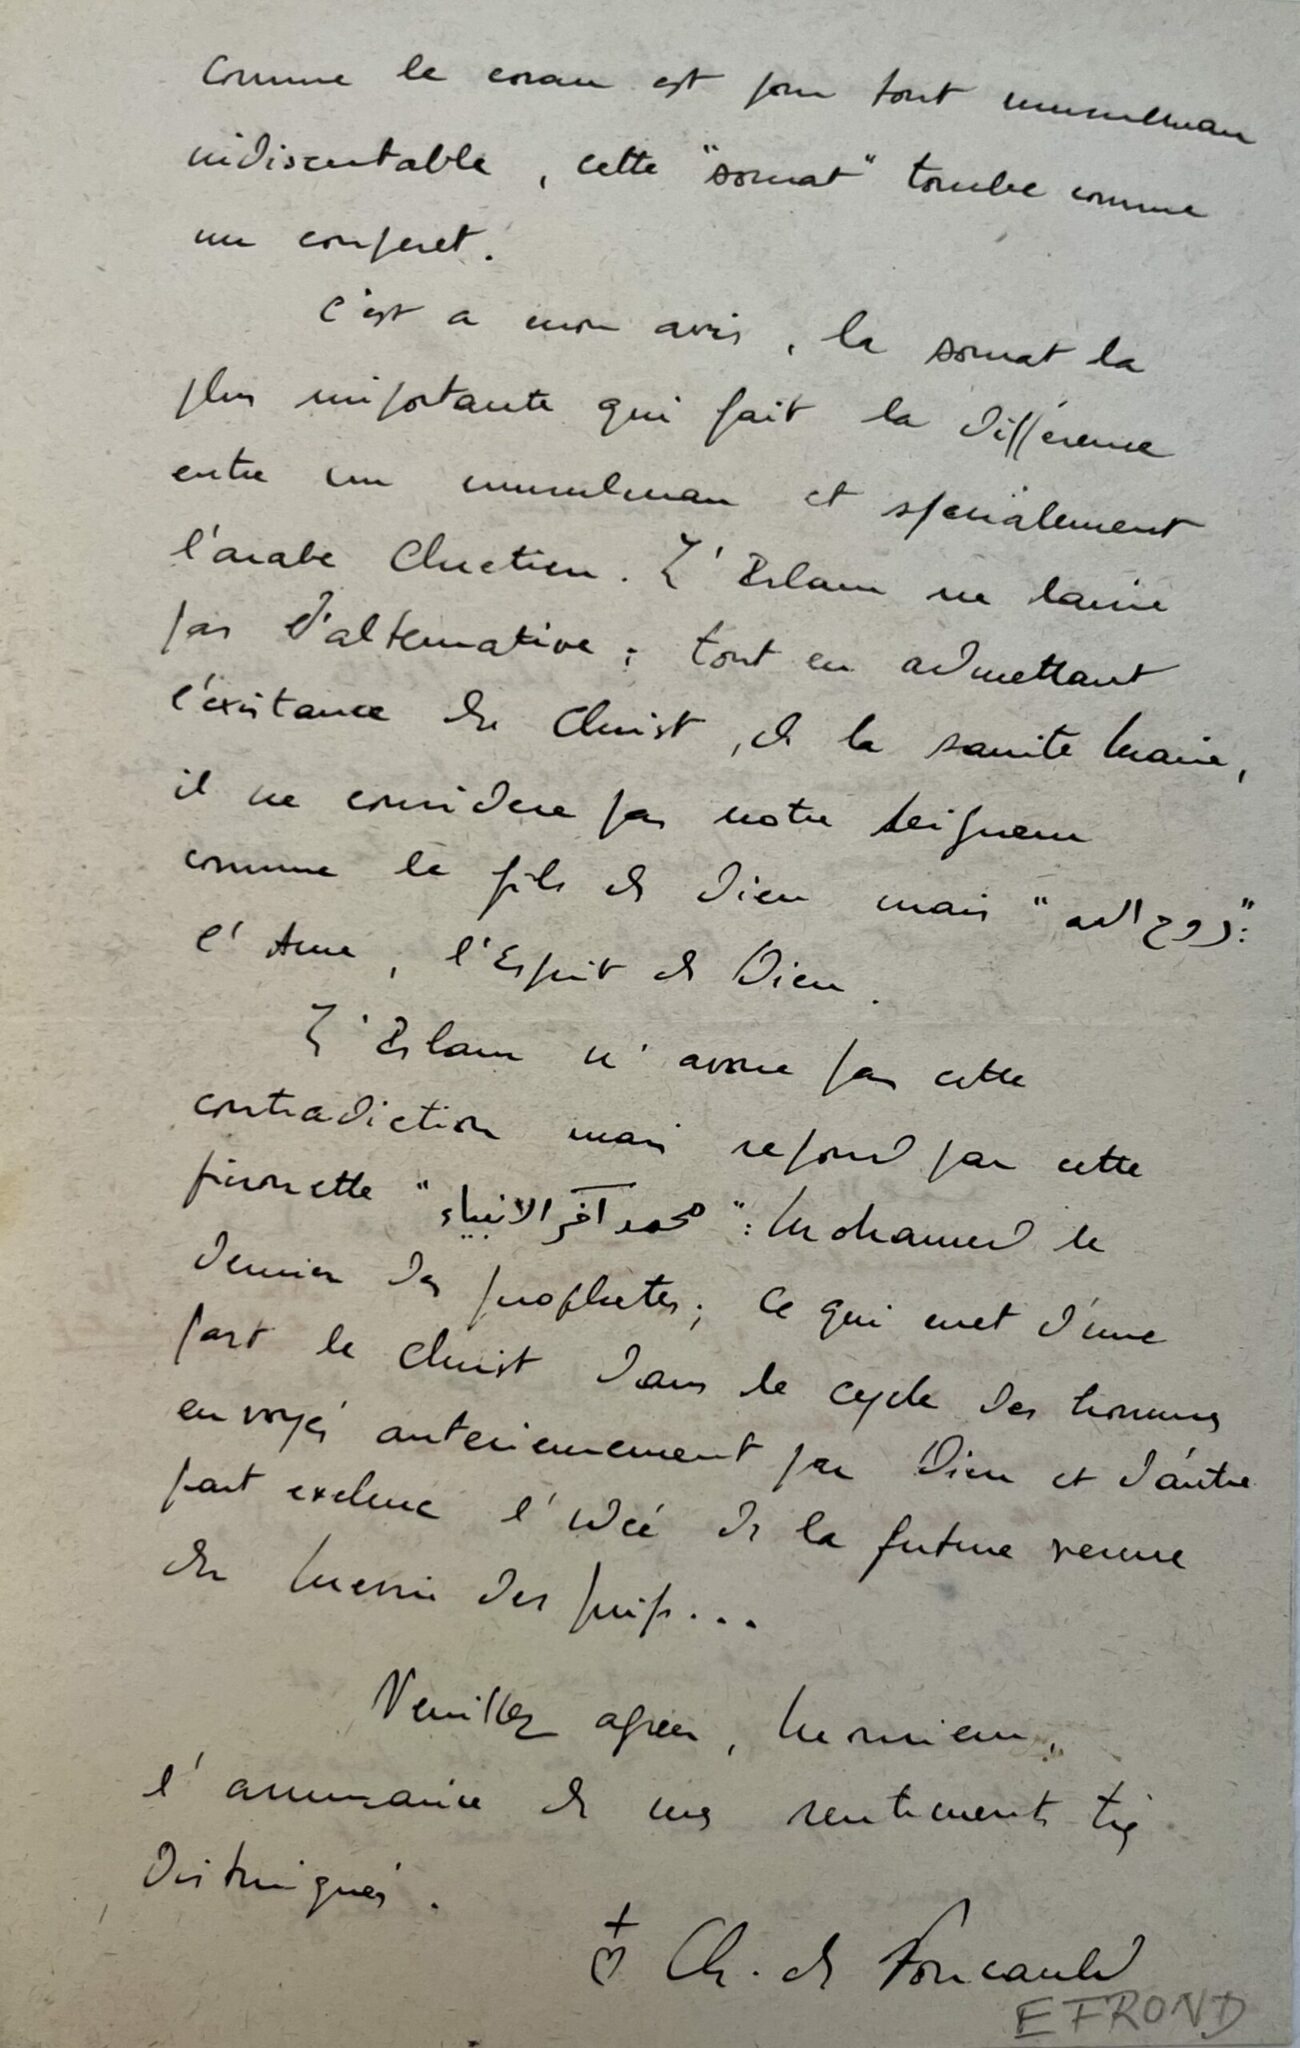 comme le coran est pour tout musulman
indiscutable, cette "sourat" tombe comme
un couperet.
C'est a mon avis, la sourat la
plus importante qui fait la différence
entre un musulman et spécialement
l'arabe Chretien. L'Islam ne laisse
pas d'alternative; tout en admettant
l'existance du Christ, de la sainte Marie,
il ne considere pas notre Seigneur
comme le fils de Dieu mais "روح الله":
l'Ame, l'Esprit de Dieu.
L'Islam n'avoue pas cette
contradiction mais repond par cette
pirouette "محمد آخر الانبياء": Mohamed le
dernier des prophetes; ce qui met d'une
part le Christ dans le cycle des hommes
envoyés anterieurement par Dieu et d'autre
part exclue l'idée de la future venue
du Messie des juifs...
Veuillez agreer, Monsieur,
l'assurance de mes sentiments très
distingués.
Ch. de Foucauld
EFROND